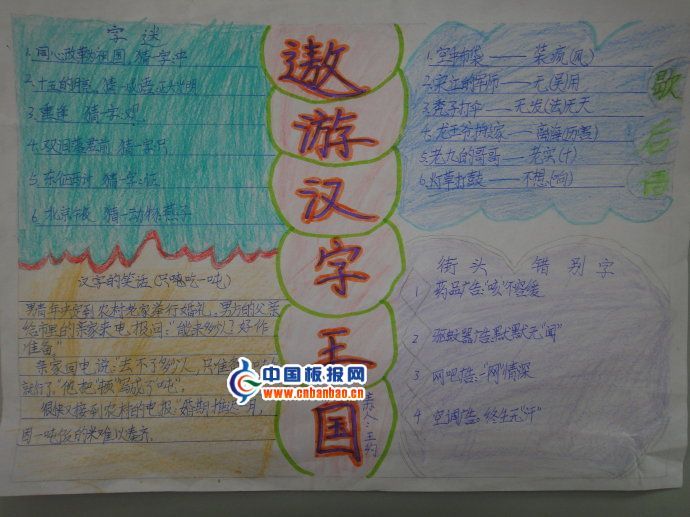 遨游汉字王国
字谜
1.同心改革为祖国 猜一字:冲
2.十五的月亮 猜一成语:正大光明
3.重逢 猜一字:观
4.双泪落君前 猜一字:只
5.东征西讨 猜一字:证
6.北京候 猜一动物:燕子
汉字的笑话(只吃一吨)
男青年决定到农村老家举行婚礼,男方的父亲
给市里的亲家来电报问:"能来多少人?好作
准备。"
亲家回电说:"去不了多少人,只准备
就行了。"他把"顿"写成了"吨"。
很快又接到农村的电报:"婚期推迟一月,
因一吨饭的米难以凑齐。
歇后语
1.空中布袋——装疯(风)
2.宋江的军师——无(吴)用
3.秃子打伞——无发(法)无天
4.龙王爷搬家——离海(厉害)
5.老九的哥哥——老实(十)
6.灯草打鼓——不想(响)
街头错别字
1 药品广告:"咳"不容缓
2 驱蚊器广告:默默无"闻"
3 网吧广告:一"网"情深
4 空调广告:终生无"汗"
王约
中国板报网
www.cnbanbao.cn